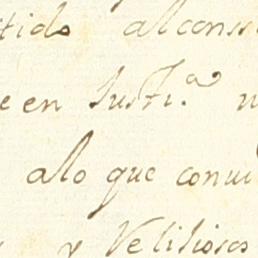 tido alconss
e en Justi.ª
alo que conui
y Relijiosos